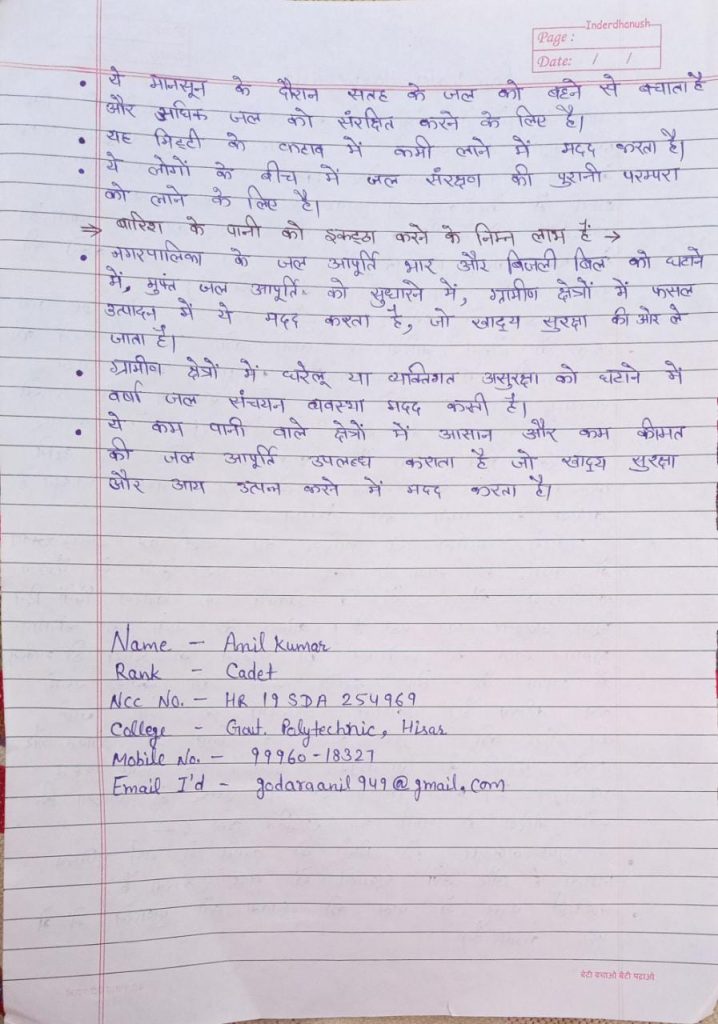 Inderdhanush
Page :
Date: / /
• ये मानसून के दौरान सतह के जल को बहने से बचाता है
और अधिक जल को संरक्षित करने के लिए है।
• यह मिट्टी के कटाव में कमी लाने में मदद करता है।
• ये लोगों के बीच में जल संरक्षण की पुरानी परम्परा
को लाने के लिए है।
⇒ बारिश के पानी को इकट्ठा करने के निम्न लाभ हैं →
• नगरपालिका के जल आपूर्ति भार और बिजली बिल को घटाने
में, मुफ्त जल आपूर्ति को सुधारने में, ग्रामीण क्षेत्रों में फसल
उत्पादन में ये मदद करता है, जो खाद्य सुरक्षा की ओर ले
जाता है।
• ग्रामीण क्षेत्रों में घरेलू या व्यक्तिगत असुरक्षा को घटाने में
वर्षा जल संचयन व्यवस्था मदद करती है।
• ये कम पानी वाले क्षेत्रों में आसान और कम कीमत
की जल आपूर्ति उपलब्ध कराता है जो खाद्य सुरक्षा
और आय उत्पन्न करने में मदद करता है।
Name - Anil Kumar
Rank - Cadet
NCC No. - HR 19 SDA 254969
College - Govt. Polytechnic, Hisar
Mobile No. - 99960-18327
Email I'd - godaraanil949@gmail.com
बेटी बचाओ बेटी पढ़ाओ